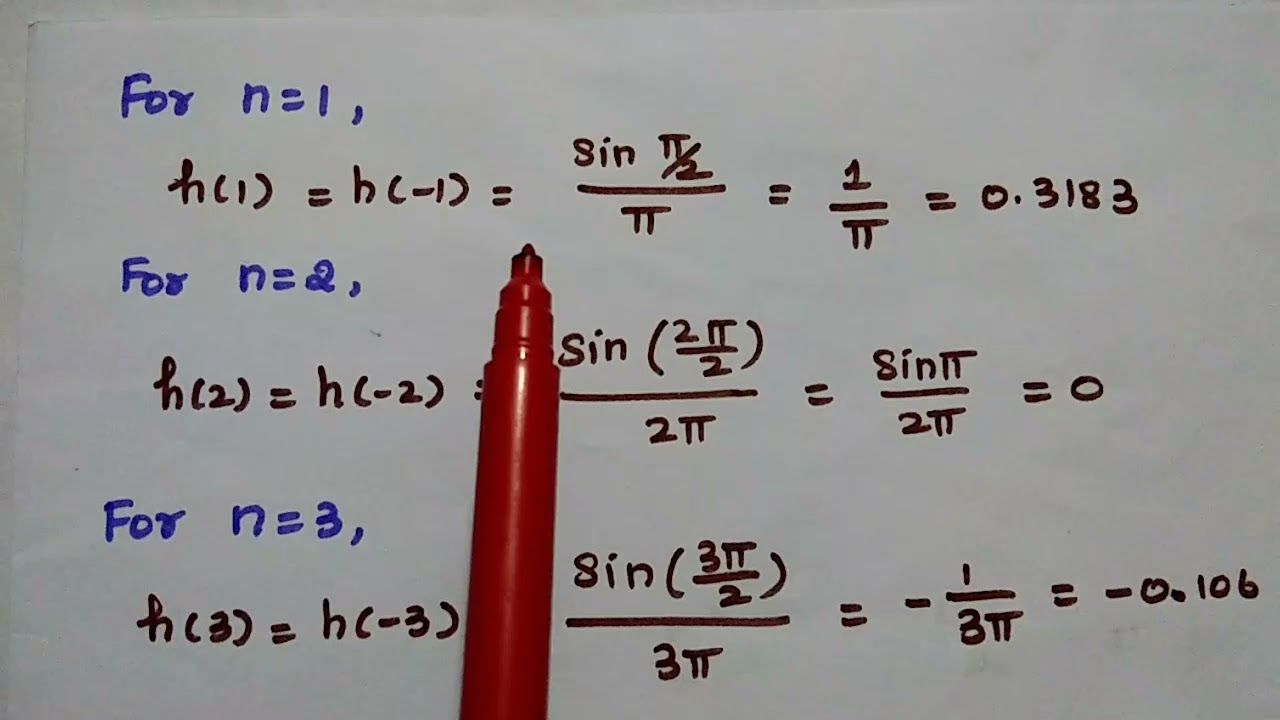 For n=1,
h(1) = h(-1) = sin π/2 / π = 1/π = 0.3183
For n=2,
h(2) = h(-2) = sin (2π/2) / 2π = sinπ / 2π = 0
For n=3,
h(3) = h(-3) sin (3π/2) / 3π = - 1/3π = -0.106